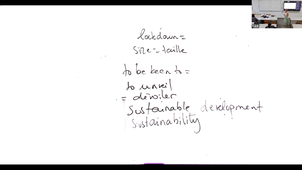 lockdown =
size = taille
to be keen to =
to unveil
= dévoiler
sustainable development
sustainability